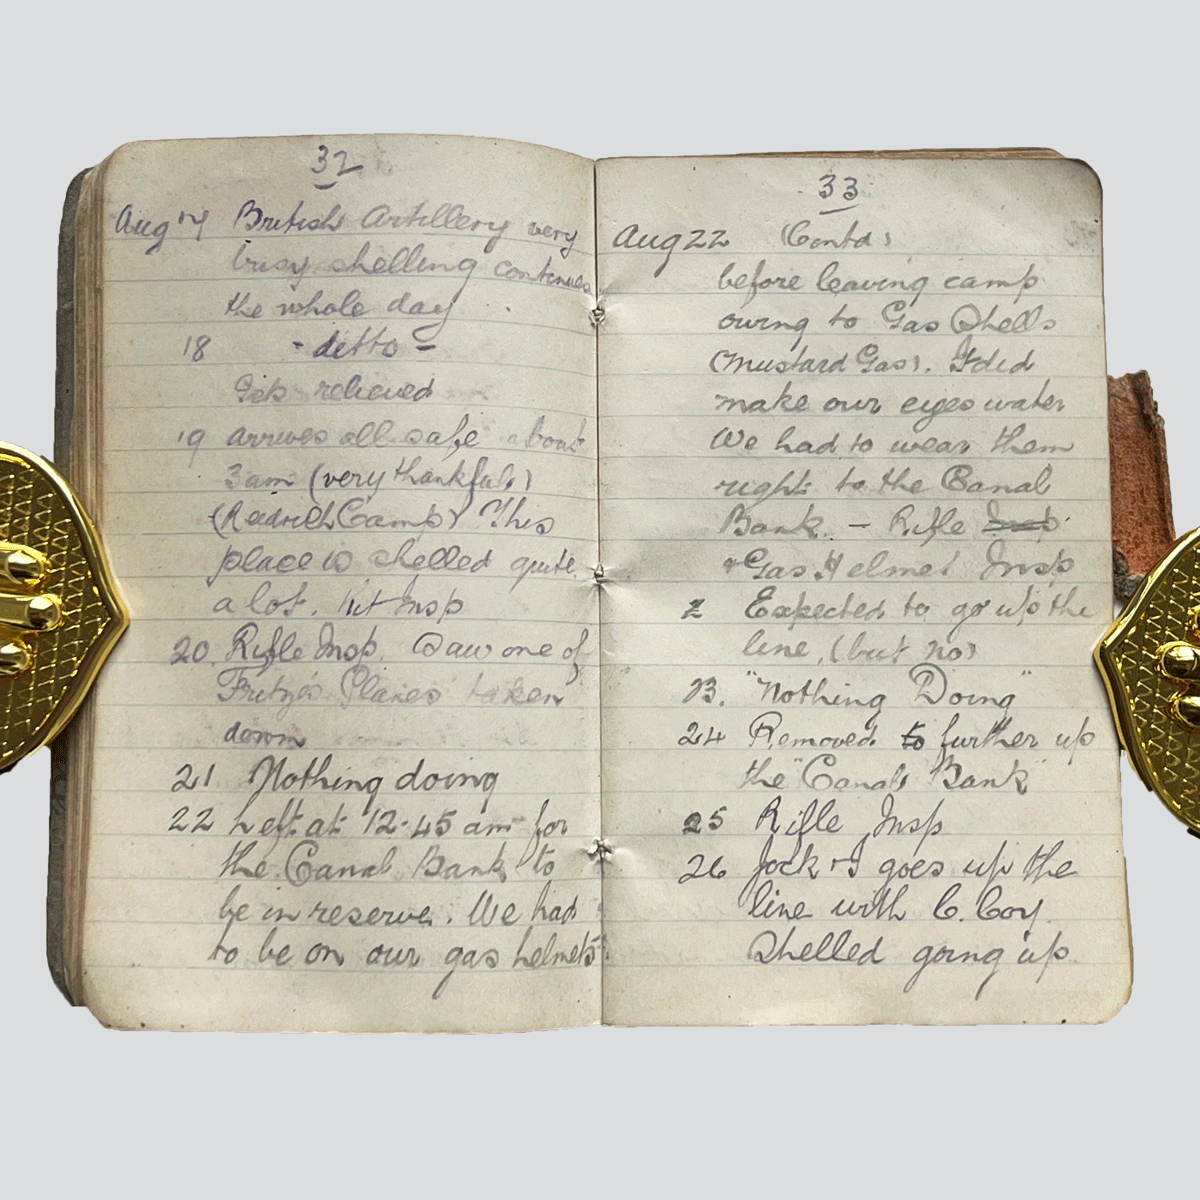 32
Aug 17 British Artillery very
busy shelling continues
the whole day
18 - ditto -
Gets relieved
19 arrives all safe about
3am (very thankful)
Camp) This
place is shelled quite
a lot. Kit Insp
20. Rifle Insp. Saw one of
Fritz's Planes taken
down
21 Nothing doing
22 Left at 12.45 am for
the Canal Bank to
be in reserve. We had
to be on our gas helmets
33
Aug 22 (Contd)
before leaving camp
owing to Gas Shells
(Mustard Gas). It did
make our eyes water
We had to wear them
right to the Canal
Bank. - Rifle Insp
+ Gas Helmet Insp
Expected to go up the
line, (but no)
23. "Nothing Doing"
24 Removed to further up
the "Canal Bank"
25 Rifle Insp
26 Jock + I goes up the
line with C. Coy.
Shelled going up.